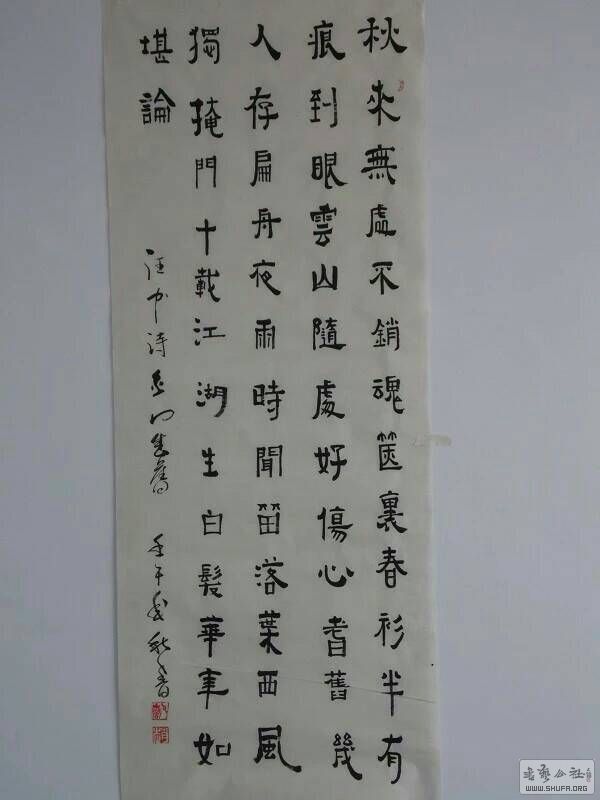 秋來無處不銷魂篋裏春衫半有
痕到眼雲山隨處好傷心耆舊幾
人存扁舟夜雨時聞笛落葉西風
獨掩門十載江湖生白髮華年如
堪論
汪中詩 秋書
書藝公社
WWW.SHUFA.ORG